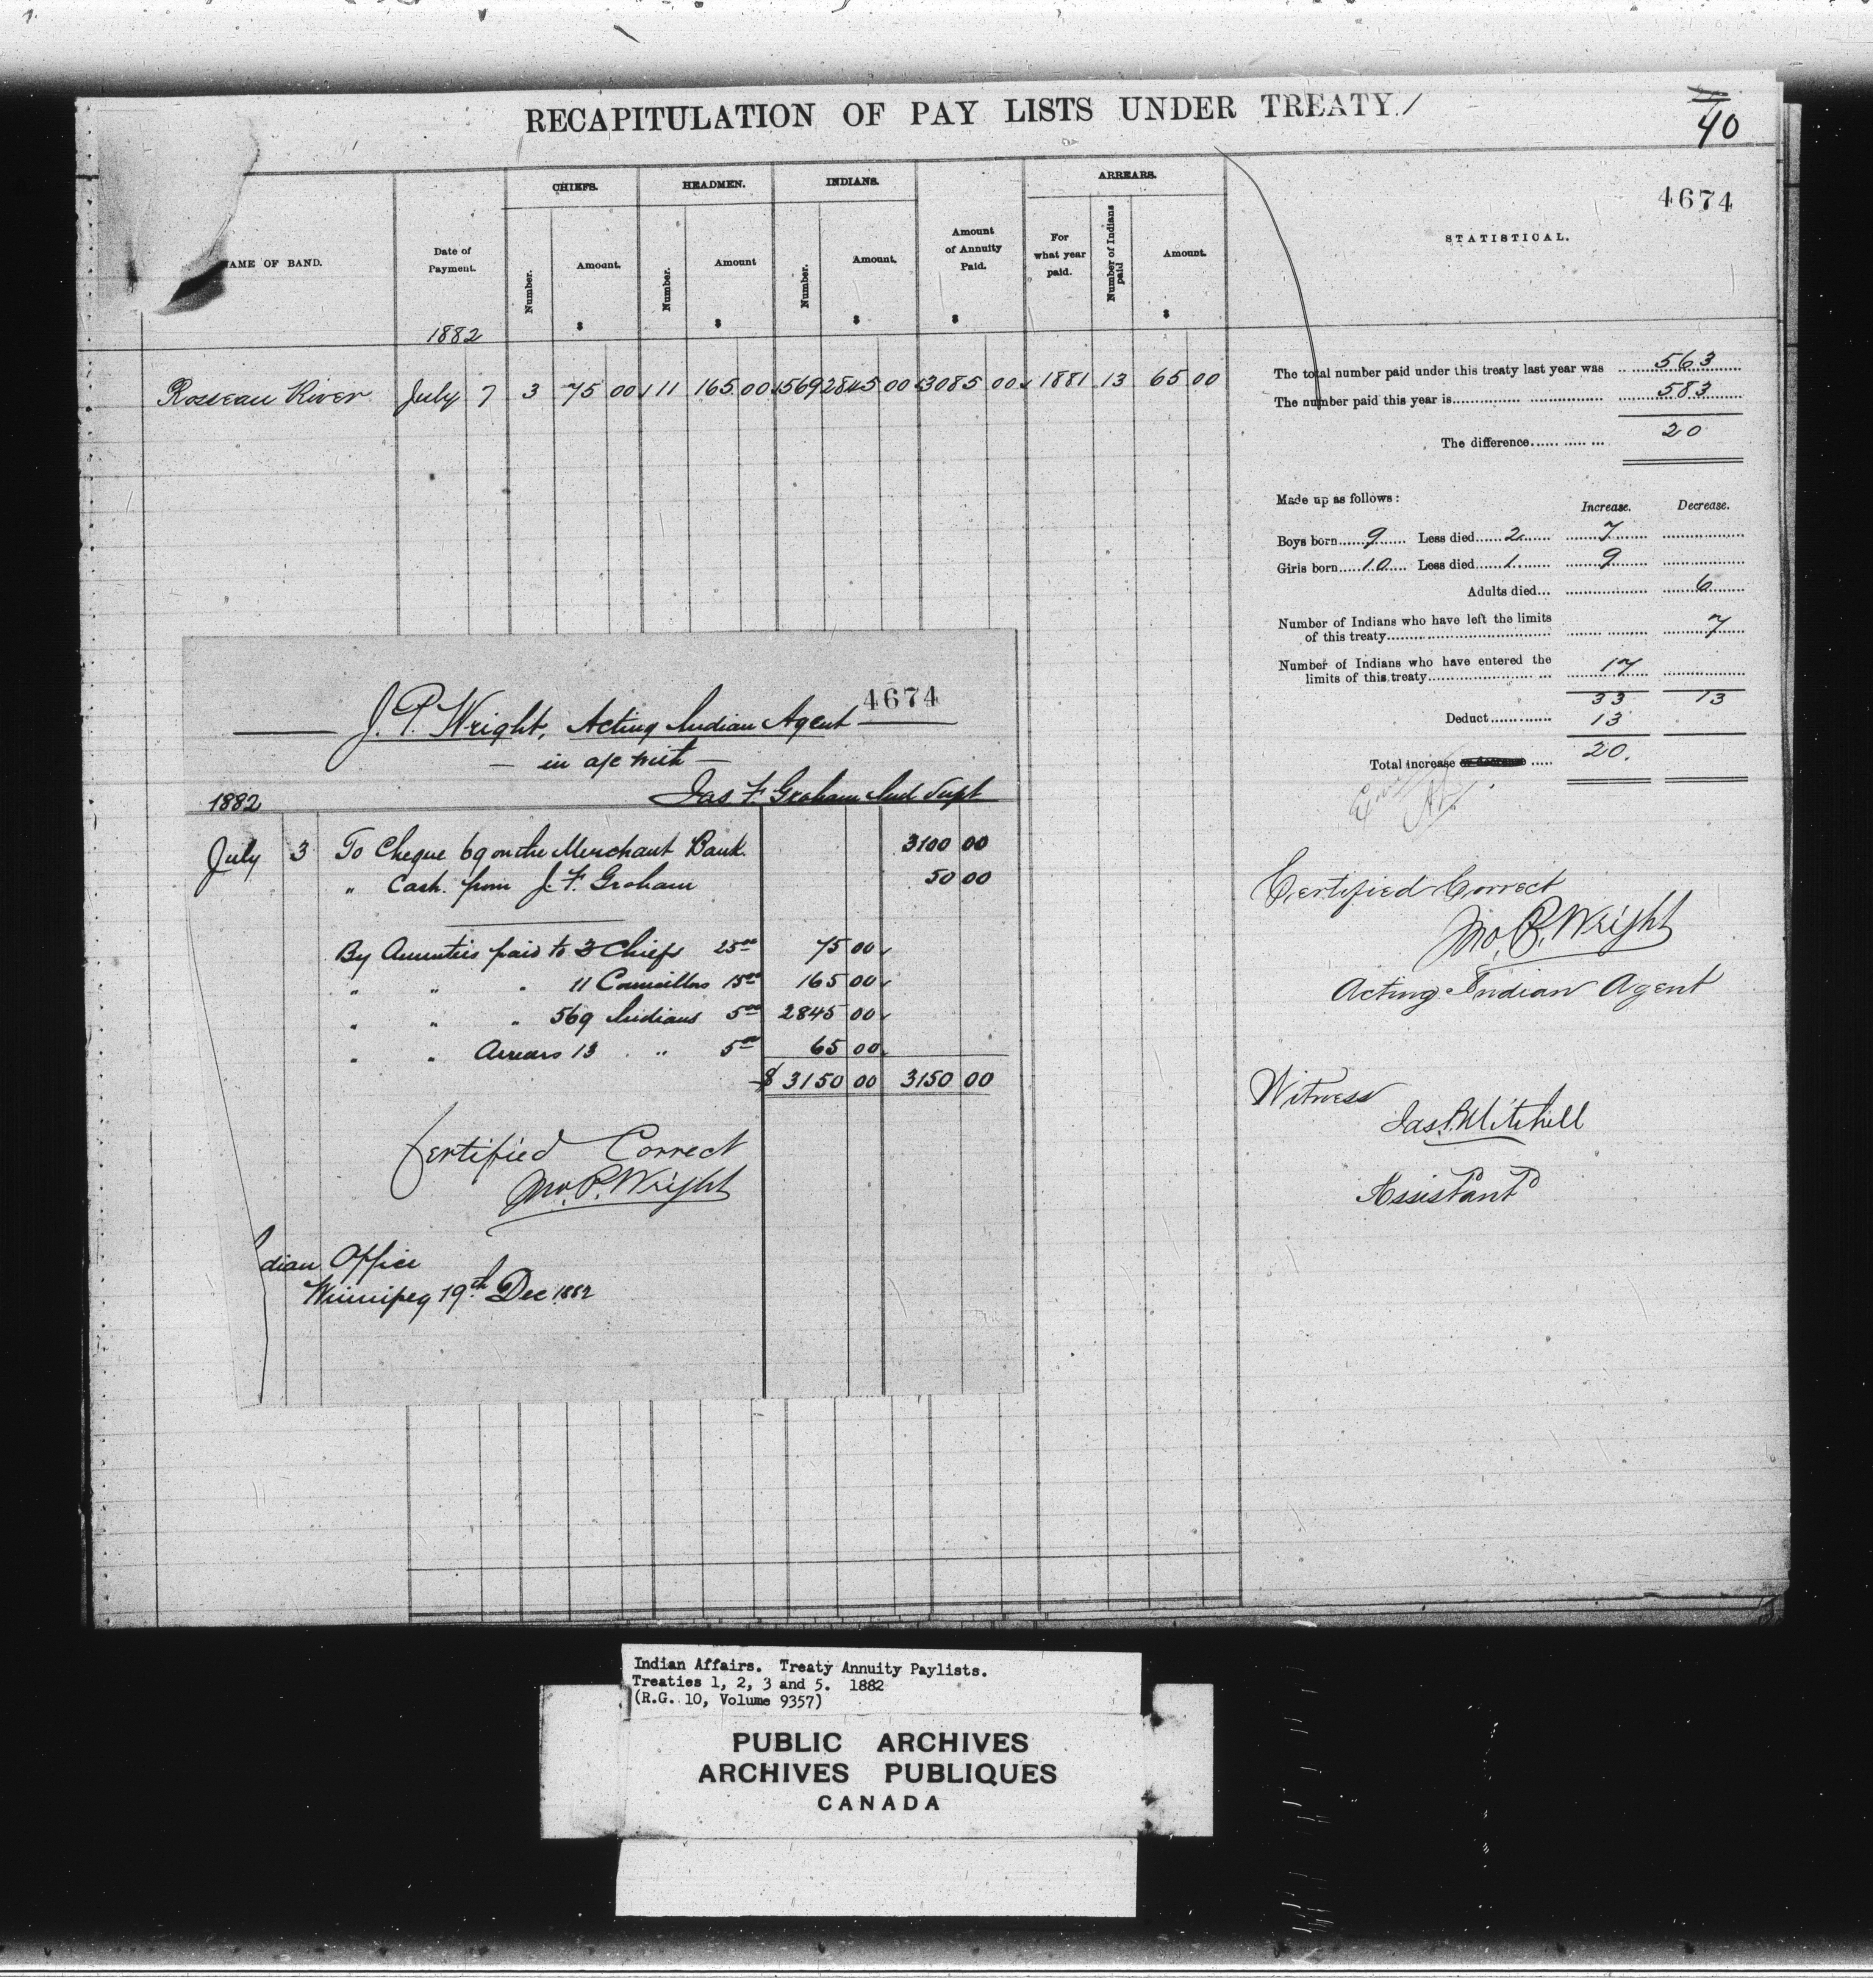 RECAPITULATION OF PAY LISTS UNDER TREATY 1
40
4674
NAME OF BAND.
Date of Payment.
CHIEFS.
Number.
Amount.
$
HEADMEN.
Number.
Amount
$
INDIANS.
Number.
Amount.
$
Amount of Annuity Paid.
$
ARREARS.
For what year paid.
Number of Indians paid
Amount.
$
STATISTICAL.
1882
Rosseau River July 7 3 75 00 11 165 00 569 2845 00 3085 00 1881 13 65 00
The total number paid under this treaty last year was 563
The number paid this year is 583
The difference 20
Made up as follows:
Increase. Decrease.
Boys born 9 Less died 2 7
Girls born 10 Less died 1 9
Adults died 6
Number of Indians who have left the limits
of this treaty 7
Number of Indians who have entered the
limits of this treaty 17
33 13
Deduct 13
Total increase 20.
Certified Correct
Jno. P. Wright
Acting Indian Agent
Witness
Jas. P. Mitchell
Assistant
4674
J. P. Wright, Acting Indian Agent
— in a/c with —
Jas F. Graham Ind Supt
1882
July 3 To Cheque 69 on the Merchant Bank 3100 00
" Cash from J. F. Graham 50 00
By Annuities paid to 3 Chiefs 25.00 75 00
" " " 11 Councillors 15.00 165 00
" " " 569 Indians 5.00 2845 00
" " Arrears 13 " 5.00 65 00
$ 3150 00 3150 00
Certified Correct
Jno. P. Wright
dian Office
Winnipeg 19th Dec 1882
Indian Affairs. Treaty Annuity Paylists.
Treaties 1, 2, 3 and 5. 1882
(R.G. 10, Volume 9357)
PUBLIC ARCHIVES
ARCHIVES PUBLIQUES
CANADA